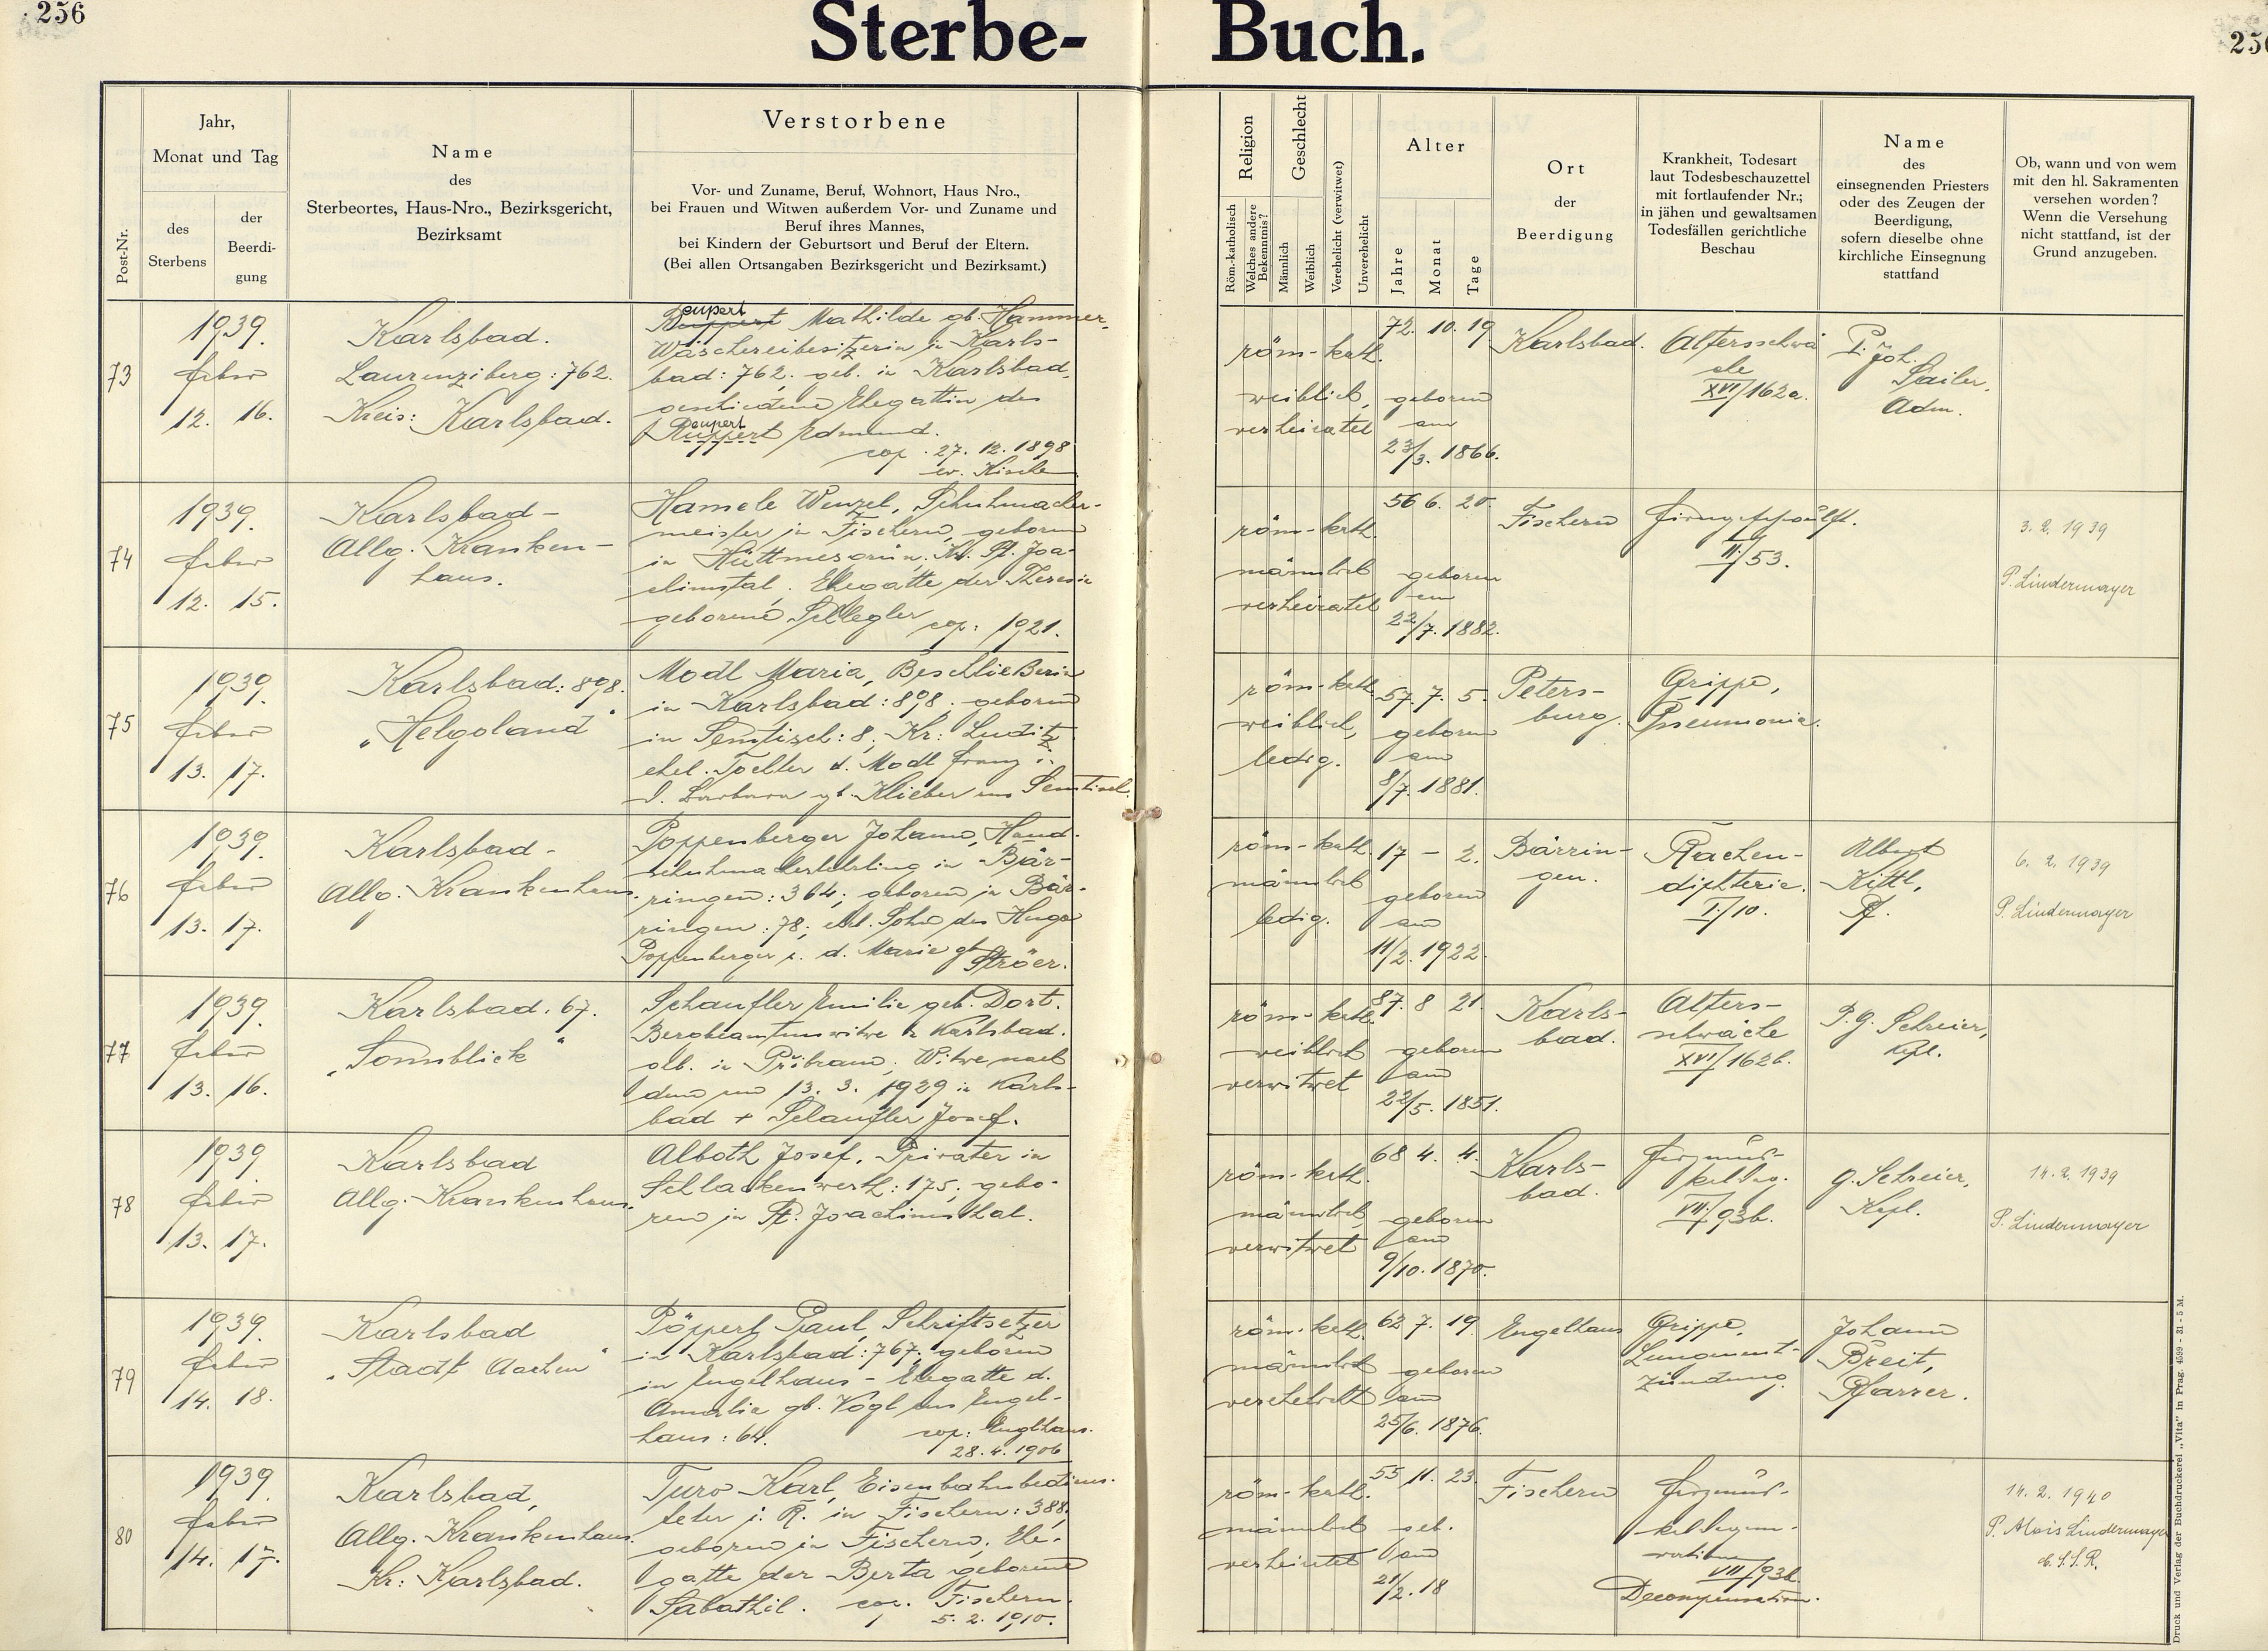 256
Sterbe-
Buch.
256
Post-Nr.
Jahr,
Monat und Tag
des
Sterbens
der
Beerdi-
gung
Name
des
Sterbeortes, Haus-Nro., Bezirksgericht,
Bezirksamt
Verstorbene
Vor- und Zuname, Beruf, Wohnort, Haus Nro.,
bei Frauen und Witwen außerdem Vor- und Zuname und
Beruf ihres Mannes,
bei Kindern der Geburtsort und Beruf der Eltern.
(Bei allen Ortsangaben Bezirksgericht und Bezirksamt.)
Religion
Röm.-katholisch
Welches andere
Bekenntnis?
Geschlecht
Männlich
Weiblich
Verehelicht (verwitwet)
Unverehelicht
Alter
Jahre
Monat
Tage
Ort
der
Beerdigung
Krankheit, Todesart
laut Todesbeschauzettel
mit fortlaufender Nr.;
in jähen und gewaltsamen
Todesfällen gerichtliche
Beschau
Name
des
einsegnenden Priesters
oder des Zeugen der
Beerdigung,
sofern dieselbe ohne
kirchliche Einsegnung
stattfand
Ob, wann und von wem
mit den hl. Sakramenten
versehen worden?
Wenn die Versehung
nicht stattfand, ist der
Grund anzugeben.
73
1939.
feber
12. 16.
Karlsbad.
Laurenziberg: 762.
Kreis: Karlsbad.
eupert
Mathilde gb. Hammer,
Wäschereibesitzerin in Karls-
bad: 762, geb. in Karlsbad,
geschiedene Ehegattin des
eupert
Ruppert Edmund.
cop. 27. 12. 1898
ev. Kirche
röm.-kath.
weiblich,
verheiratet
72. 10. 19
geboren
am
23/3. 1866.
Karlsbad.
Altersschwä
che
XVI/162a.
P. Joh.
Sailer,
Adm.
74
1939.
feber
12. 15.
Karlsbad-
Allg. Kranken-
haus.
Hamele Wenzel, Schuhmacher-
meister in Fischern, geboren
in Hüttmesgrün, Kr. St. Joa-
chimstal. Ehegatte der Theresie
geborene Schlegler
cop: 1921.
röm.-kath.
männlich
verheiratet
56 6. 20.
geboren
am
22/7. 1882.
Fischern
Hirngeschwulst.
II/53.
3. 2. 1939
P. Lindermayer
75
1939.
feber
13. 17.
Karlsbad: 898.
„Helgoland"
Modl Maria, Beschließerin
in Karlsbad: 898. geboren
in Semtisch: 8; Kr: Luditz
ehel. Tochter d. Modl Franz u.
d. Barbara gb. Klieber aus Semtisch.
röm.-kath.
weiblich,
ledig.
57. 7. 5.
geboren
am
8/7. 1881.
Peters-
burg.
Grippe,
Pneumonie.
76
1939.
feber
13. 17.
Karlsbad-
Allg. Krankenhaus.
Poppenberger Johann, Hand-
schuhmacherlehrling in Bär-
ringen: 364; geboren in Bär-
ringen: 78; ehl. Sohn des Hugo
Poppenberger u. d. Marie gb
Ströer.
röm.-kath.
männlich
ledig.
17 - 2.
geboren
am
11/2. 1922.
Bärrin-
gen.
Rachen-
diphterie.
I./10.
Albert
Kittl,
Pf.
6. 2. 1939
P. Lindermayer
77
1939.
feber
13. 16.
Karlsbad. 67.
„Sonnblick"
Schaufler Emilie geb. Dort.
Bergbeamtenswitwe in Karlsbad.
glb. in Přibram; Witwe nach
dem am 13. 3. 1929 in Karls-
bad + Schaufler Josef.
röm.-kath.
weiblich
verwitwet
87. 8 21
geboren
am
22/5. 1851.
Karls-
bad.
Alters-
schwäche
XVI/162b.
P. G. Schreier,
Kpl.
78
1939.
feber
13. 17.
Karlsbad
Allg. Krankenhaus.
Alboth Josef, Privater in
Schlackenwerth: 175; gebo-
ren in St. Joachimsthal.
röm.-kath.
männlich
verwitwet
68 4. 4.
geboren
am
9/10. 1870.
Karls-
bad.
VII/93b.
G. Schreier,
Kapl.
14. 2. 1939
P. Lindermayer
79
1939.
feber
14. 18.
Karlsbad
„Stadt Aachen"
Pöpperl Paul, Schriftsetzer
in Karlsbad: 767; geboren
in Engelhaus - Ehegatte d.
Amalie gb. Vogl aus Engel-
haus: 64.
cop: Englhaus.
28. 4. 1906
röm.-kath.
männlich
verehelicht
62 7. 19.
geboren
am
25/6. 1876.
Engelhaus
Grippe,
Lungenent-
zündung.
Johann
Breit,
Pfarrer.
80
1939.
feber
14. 17.
Karlsbad,
Allg. Krankenhaus.
Kr: Karlsbad.
Turo Karl, Eisenbahnbediens-
teter i. R. in Fischern: 388.
geboren in Fischern; Ehe-
gatte der Berta geborene
Sabathil. cop. Fischern.
5. 2. 1910.
röm.-kath.
männlich
verheiratet
55 11. 23.
geb.
am
21/2. 18
Fischern
Herzmus-
VII/93b.
Decompensation.
14. 2. 1940
P. Alois Lindermayer
C.S.S.R.
Druck und Verlag der Buchdruckerei „Vita" in Prag. 4599 - 31 - 5 M.